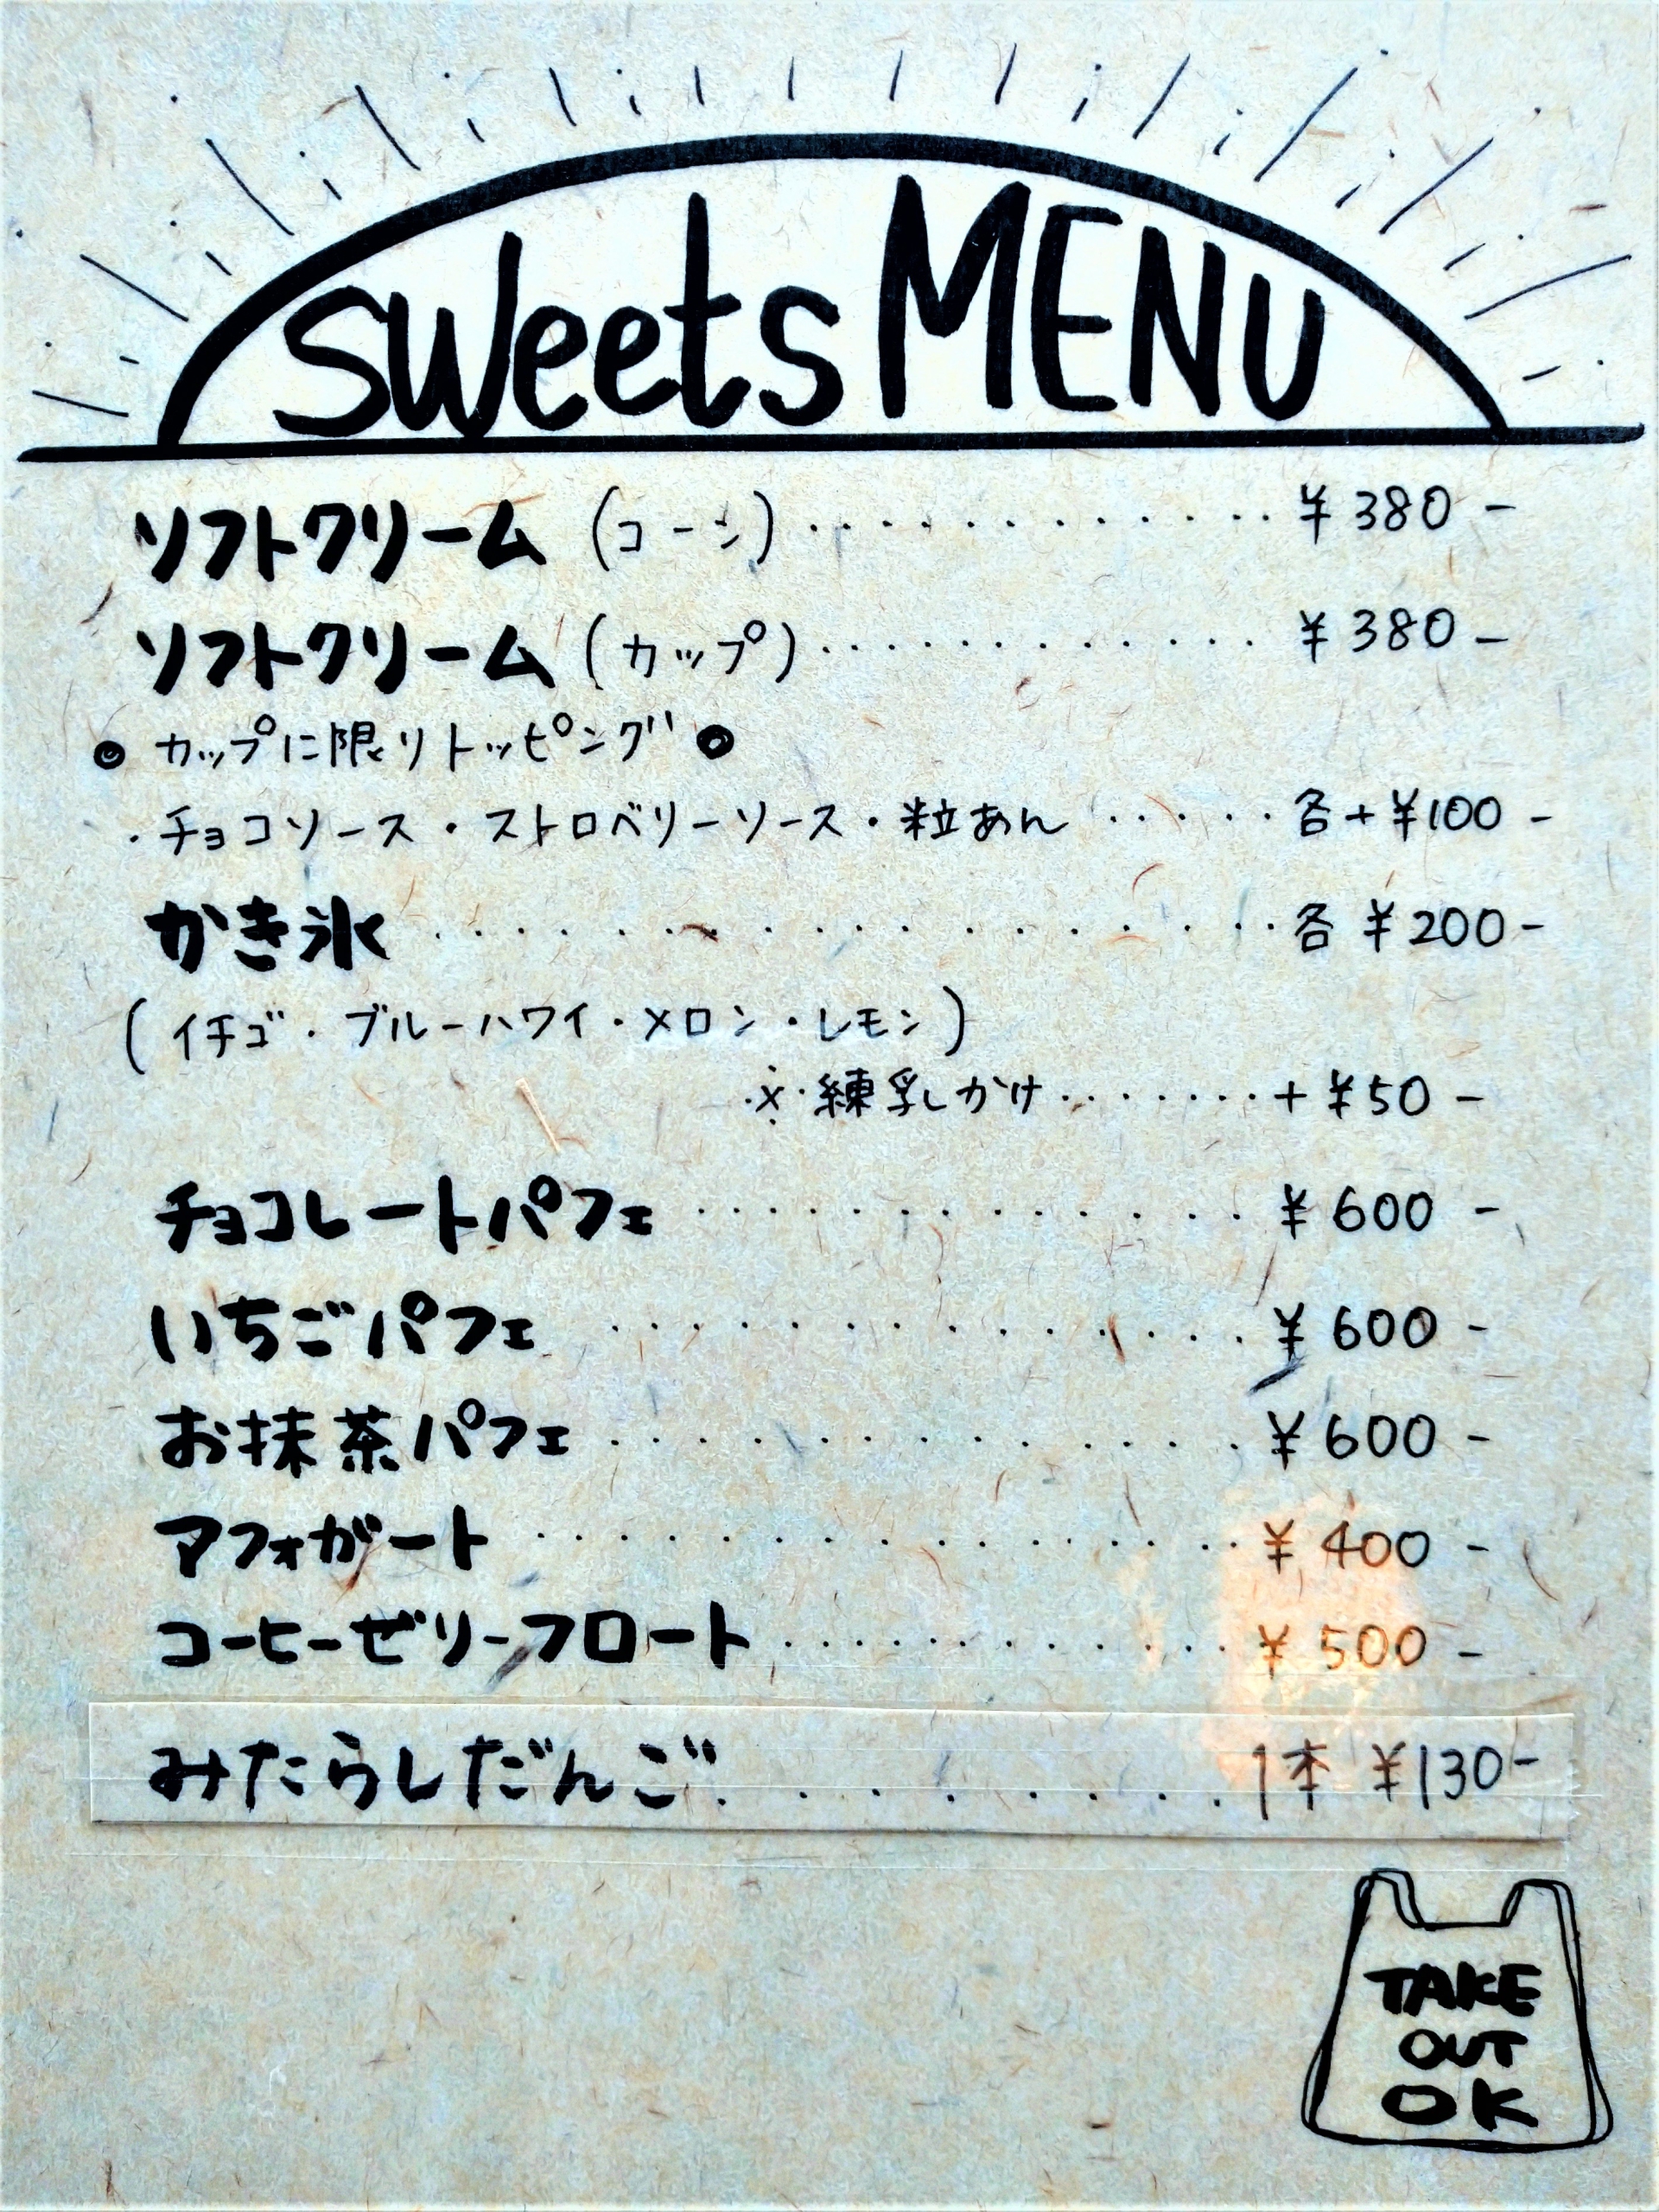 sweets MENU
ソフトクリーム (コーン) ············· ¥380-
ソフトクリーム (カップ) ············ ¥380-
◎ カップに限りトッピング ◎
・チョコソース・ストロベリーソース・粒あん ····· 各+¥100-
かき氷 ·················· 各 ¥200-
(イチゴ・ブルーハワイ・メロン・レモン)
※練乳がけ ······· +¥50-
チョコレートパフェ ·············· ¥600-
いちごパフェ ················ ¥600-
お抹茶パフェ ················ ¥600-
アフォガート ················· ¥400-
コーヒーゼリーフロート ············ ¥500-
みたらしだんご ········· 1本 ¥130-
TAKE
OUT
OK